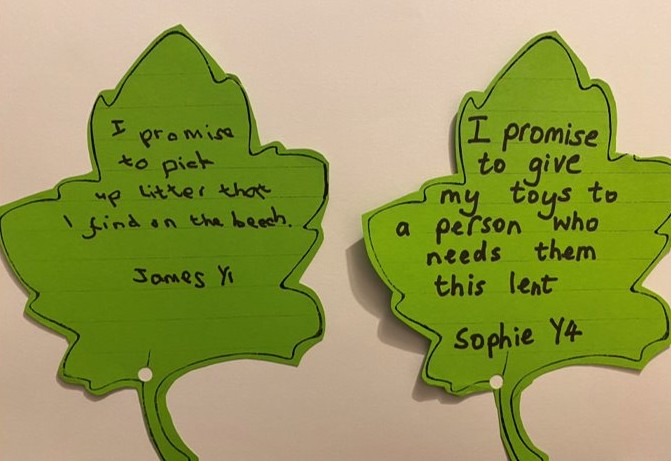 I promise
to pick
up litter that
I find on the beech.
James Y1
I promise
to give
my toys to
a person who
needs them
this lent
Sophie Y4